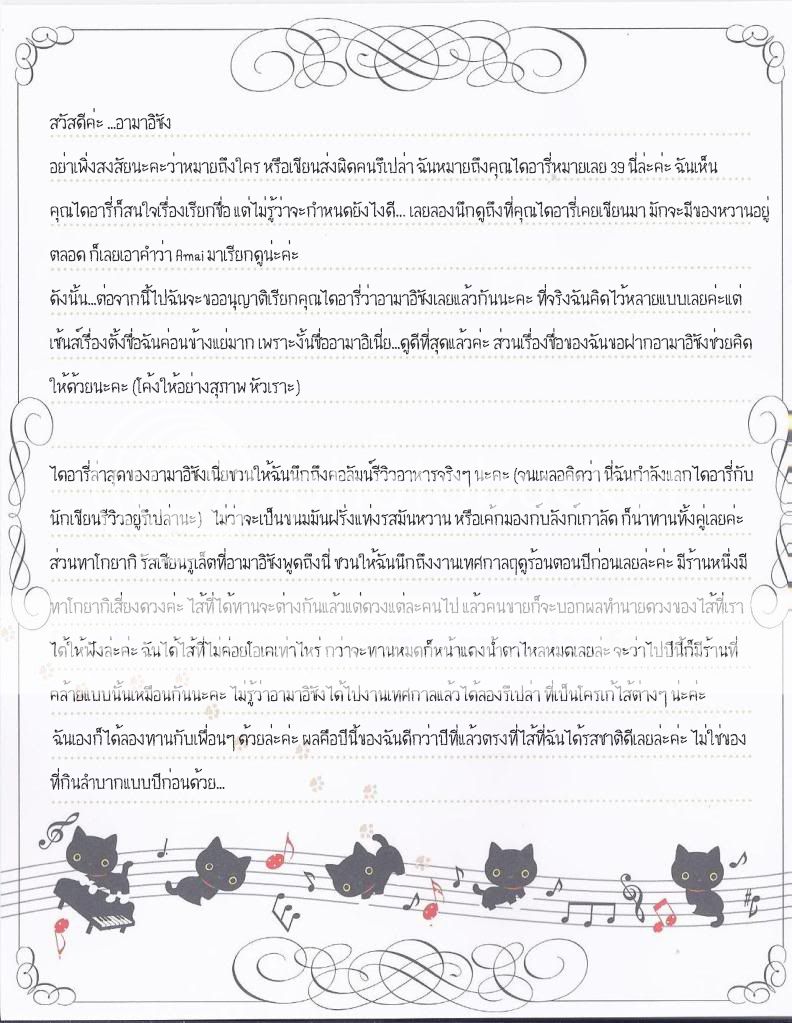 สวัสดีค่ะ ...อามาอิชัง
อย่าเพิ่งสงสัยนะคะว่าหมายถึงใคร หรือเขียนส่งผิดคนรึเปล่า ฉันหมายถึงคุณไดอารี่หมายเลข 39 นี่ล่ะค่ะ ฉันเห็น
คุณไดอารี่ก็สนใจเรื่องเรียกชื่อ แต่ไม่รู้ว่าจะกำหนดยังไงดี... เลยลองนึกดูถึงที่คุณไดอารี่เคยเขียนมา มักจะมีของหวานอยู่
ตลอด ก็เลยเอาคำว่า Amai มาเรียกดูน่ะค่ะ
ดังนั้น...ต่อจากนี้ไปฉันจะขออนุญาติเรียกคุณไดอารี่ว่าอามาอิชังเลยแล้วกันนะคะ ที่จริงฉันคิดไว้หลายแบบเลยค่ะแต่
เซ้นส์เรื่องตั้งชื่อฉันค่อนข้างแย่มาก เพราะงั้นชื่ออามาอิเนี่ย...ดูดีที่สุดแล้วค่ะ ส่วนเรื่องชื่อของฉันขอฝากอามาอิชังช่วยคิด
ให้ด้วยนะคะ (โค้งให้อย่างสุภาพ หัวเราะ)
ไดอารี่ล่าสุดของอามาอิชังเนี่ยชวนให้ฉันนึกถึงคอลัมน์รีวิวอาหารจริงๆ นะคะ (จนเผลอคิดว่า นี่ฉันกำลังแลกไดอารี่กับ
นักเขียนรีวิวอยู่รึเปล่านะ) ไม่ว่าจะเป็นขนมมันฝรั่งแท่งรสมันหวาน หรือเค้กมองก์บลังก์เกาลัด ก็น่าทานทั้งคู่เลยค่ะ
ส่วนทาโกยากิ รัสเซียนรูเล็ตที่อามาอิชังพูดถึงนี่ ชวนให้ฉันนึกถึงงานเทศกาลฤดูร้อนตอนปีก่อนเลยล่ะค่ะ มีร้านหนึ่งมี
ทาโกยากิเสี่ยงดวงค่ะ ไส้ที่ได้ทานจะต่างกันแล้วแต่ดวงแต่ละคนไป แล้วคนขายก็จะบอกผลทำนายดวงของไส้ที่เรา
ได้ให้ฟังล่ะค่ะ ฉันได้ไส้ที่ไม่ค่อยโอเคเท่าไหร่ กว่าจะทานหมดก็หน้าแดงน้ำตาไหลหมดเลยล่ะ จะว่าไปปีนี้ก็มีร้านที่
คล้ายแบบนั้นเหมือนกันนะคะ ไม่รู้ว่าอามาอิชังได้ไปงานเทศกาลแล้วได้ลองรึเปล่า ที่เป็นโครเก้ไส้ต่างๆ น่ะค่ะ
ฉันเองก็ได้ลองทานกับเพื่อนๆ ด้วยล่ะค่ะ ผลคือปีนี้ของฉันดีกว่าปีที่แล้วตรงที่ไส้ที่ฉันได้รสชาติดีเลยล่ะค่ะ ไม่ใช่ของ
ที่กินลำบากแบบปีก่อนด้วย...